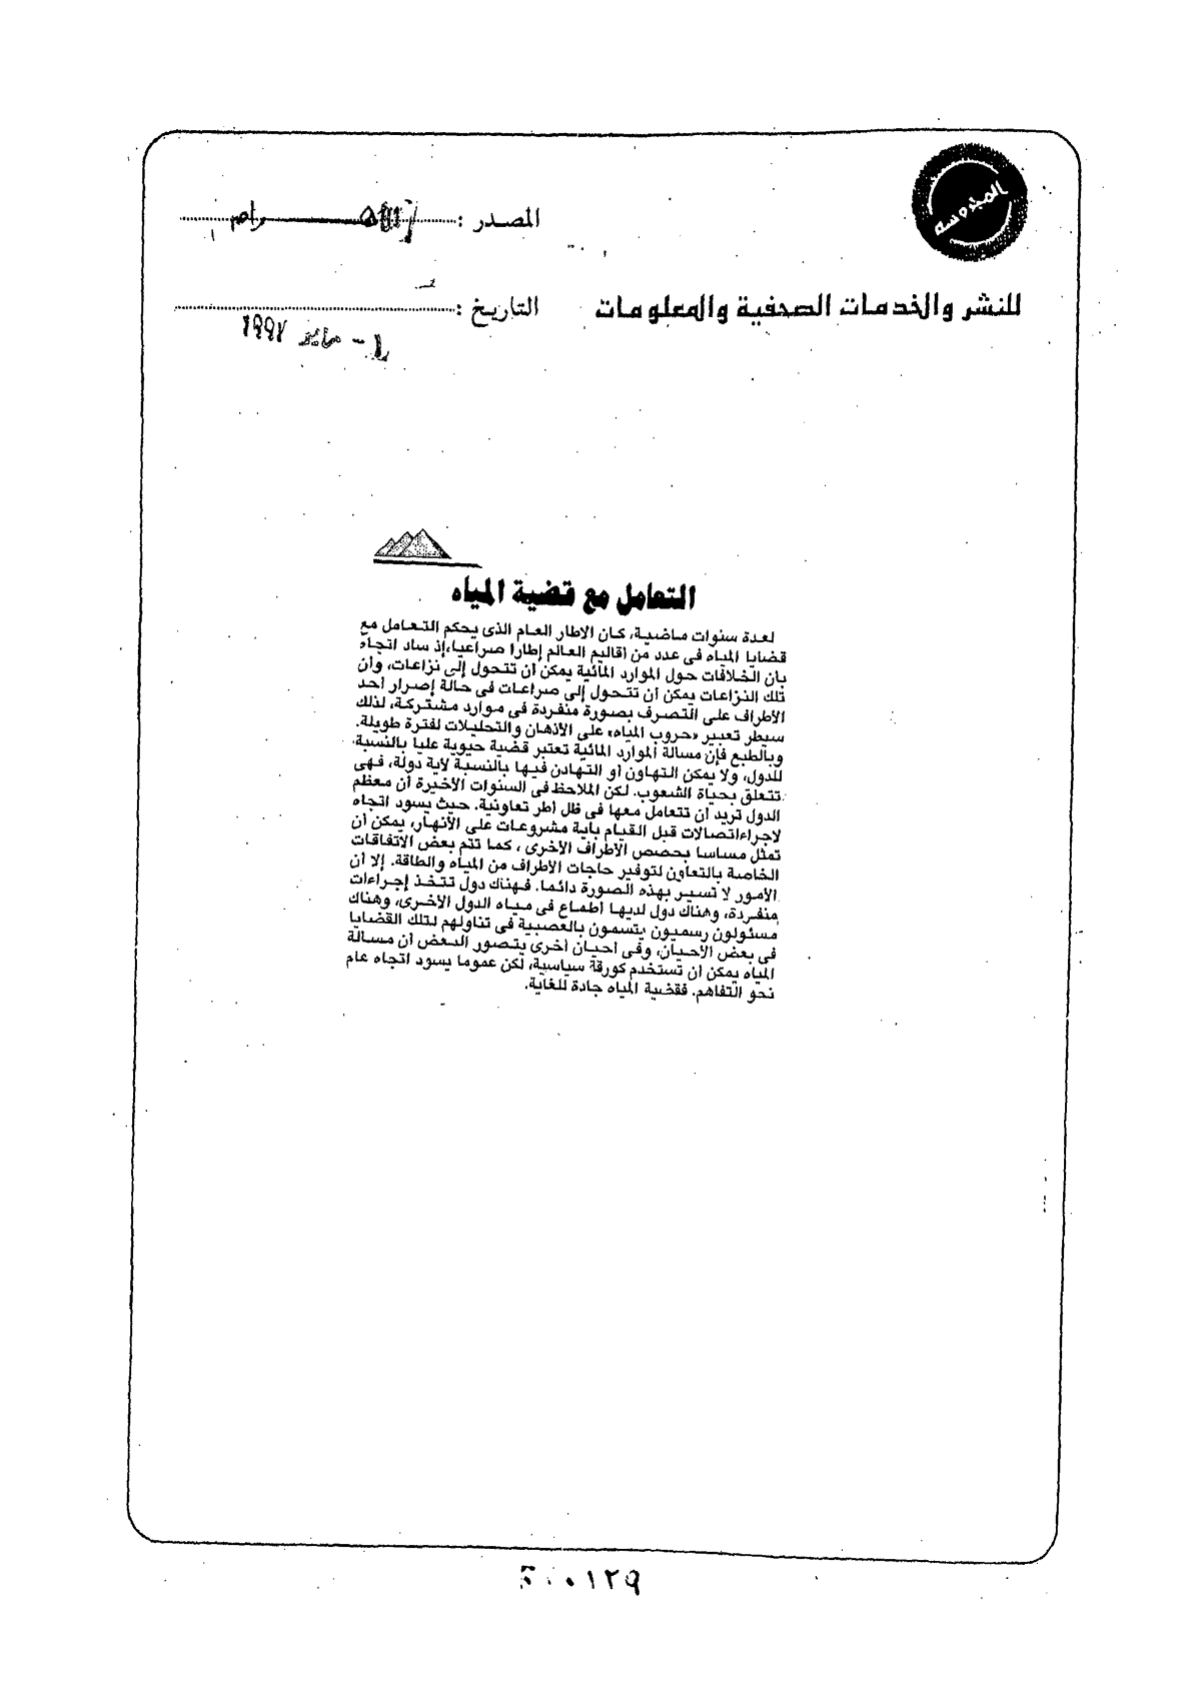 المحروسة
المصدر :
للنشر والخدمات الصحفية والمعلومات
التاريخ :
مايو ١٩٩٧
التعامل مع قضية المياه
لعدة سنوات ماضية، كان الاطار العام الذى يحكم التعامل مع
قضايا المياه فى عدد من أقاليم العالم إطارا صراعيا،إذ ساد اتجاه
بأن الخلافات حول الموارد المائية يمكن أن تتحول إلى نزاعات، وأن
تلك النزاعات يمكن أن تتحول إلى صراعات فى حالة إصرار أحد
الأطراف على التصرف بصورة منفردة فى موارد مشتركة، لذلك
سيطر تعبير «حروب المياه» على الأذهان والتحليلات لفترة طويلة.
وبالطبع فإن مسألة الموارد المائية تعتبر قضية حيوية عليا بالنسبة
للدول، ولا يمكن التهاون أو التهادن فيها بالنسبة لأية دولة، فهى
تتعلق بحياة الشعوب. لكن الملاحظ فى السنوات الأخيرة أن معظم
الدول تريد أن تتعامل معها فى ظل أطر تعاونية. حيث يسود اتجاه
لاجراء اتصالات قبل القيام بأية مشروعات على الأنهار، يمكن أن
تمثل مساسا بحصص الأطراف الأخرى ، كما تتم بعض الاتفاقات
الخاصة بالتعاون لتوفير حاجات الأطراف من المياه والطاقة. إلا أن
الأمور لا تسير بهذه الصورة دائما. فهناك دول تتخذ إجراءات
منفردة، وهناك دول لديها أطماع فى مياه الدول الأخرى، وهناك
مسئولون رسميون يتسمون بالعصبية فى تناولهم لتلك القضايا
فى بعض الأحيان، وفى أحيان أخرى يتصور البعض أن مسألة
المياه يمكن أن تستخدم كورقة سياسية، لكن عموما يسود اتجاه عام
نحو التفاهم. فقضية المياه جادة للغاية.